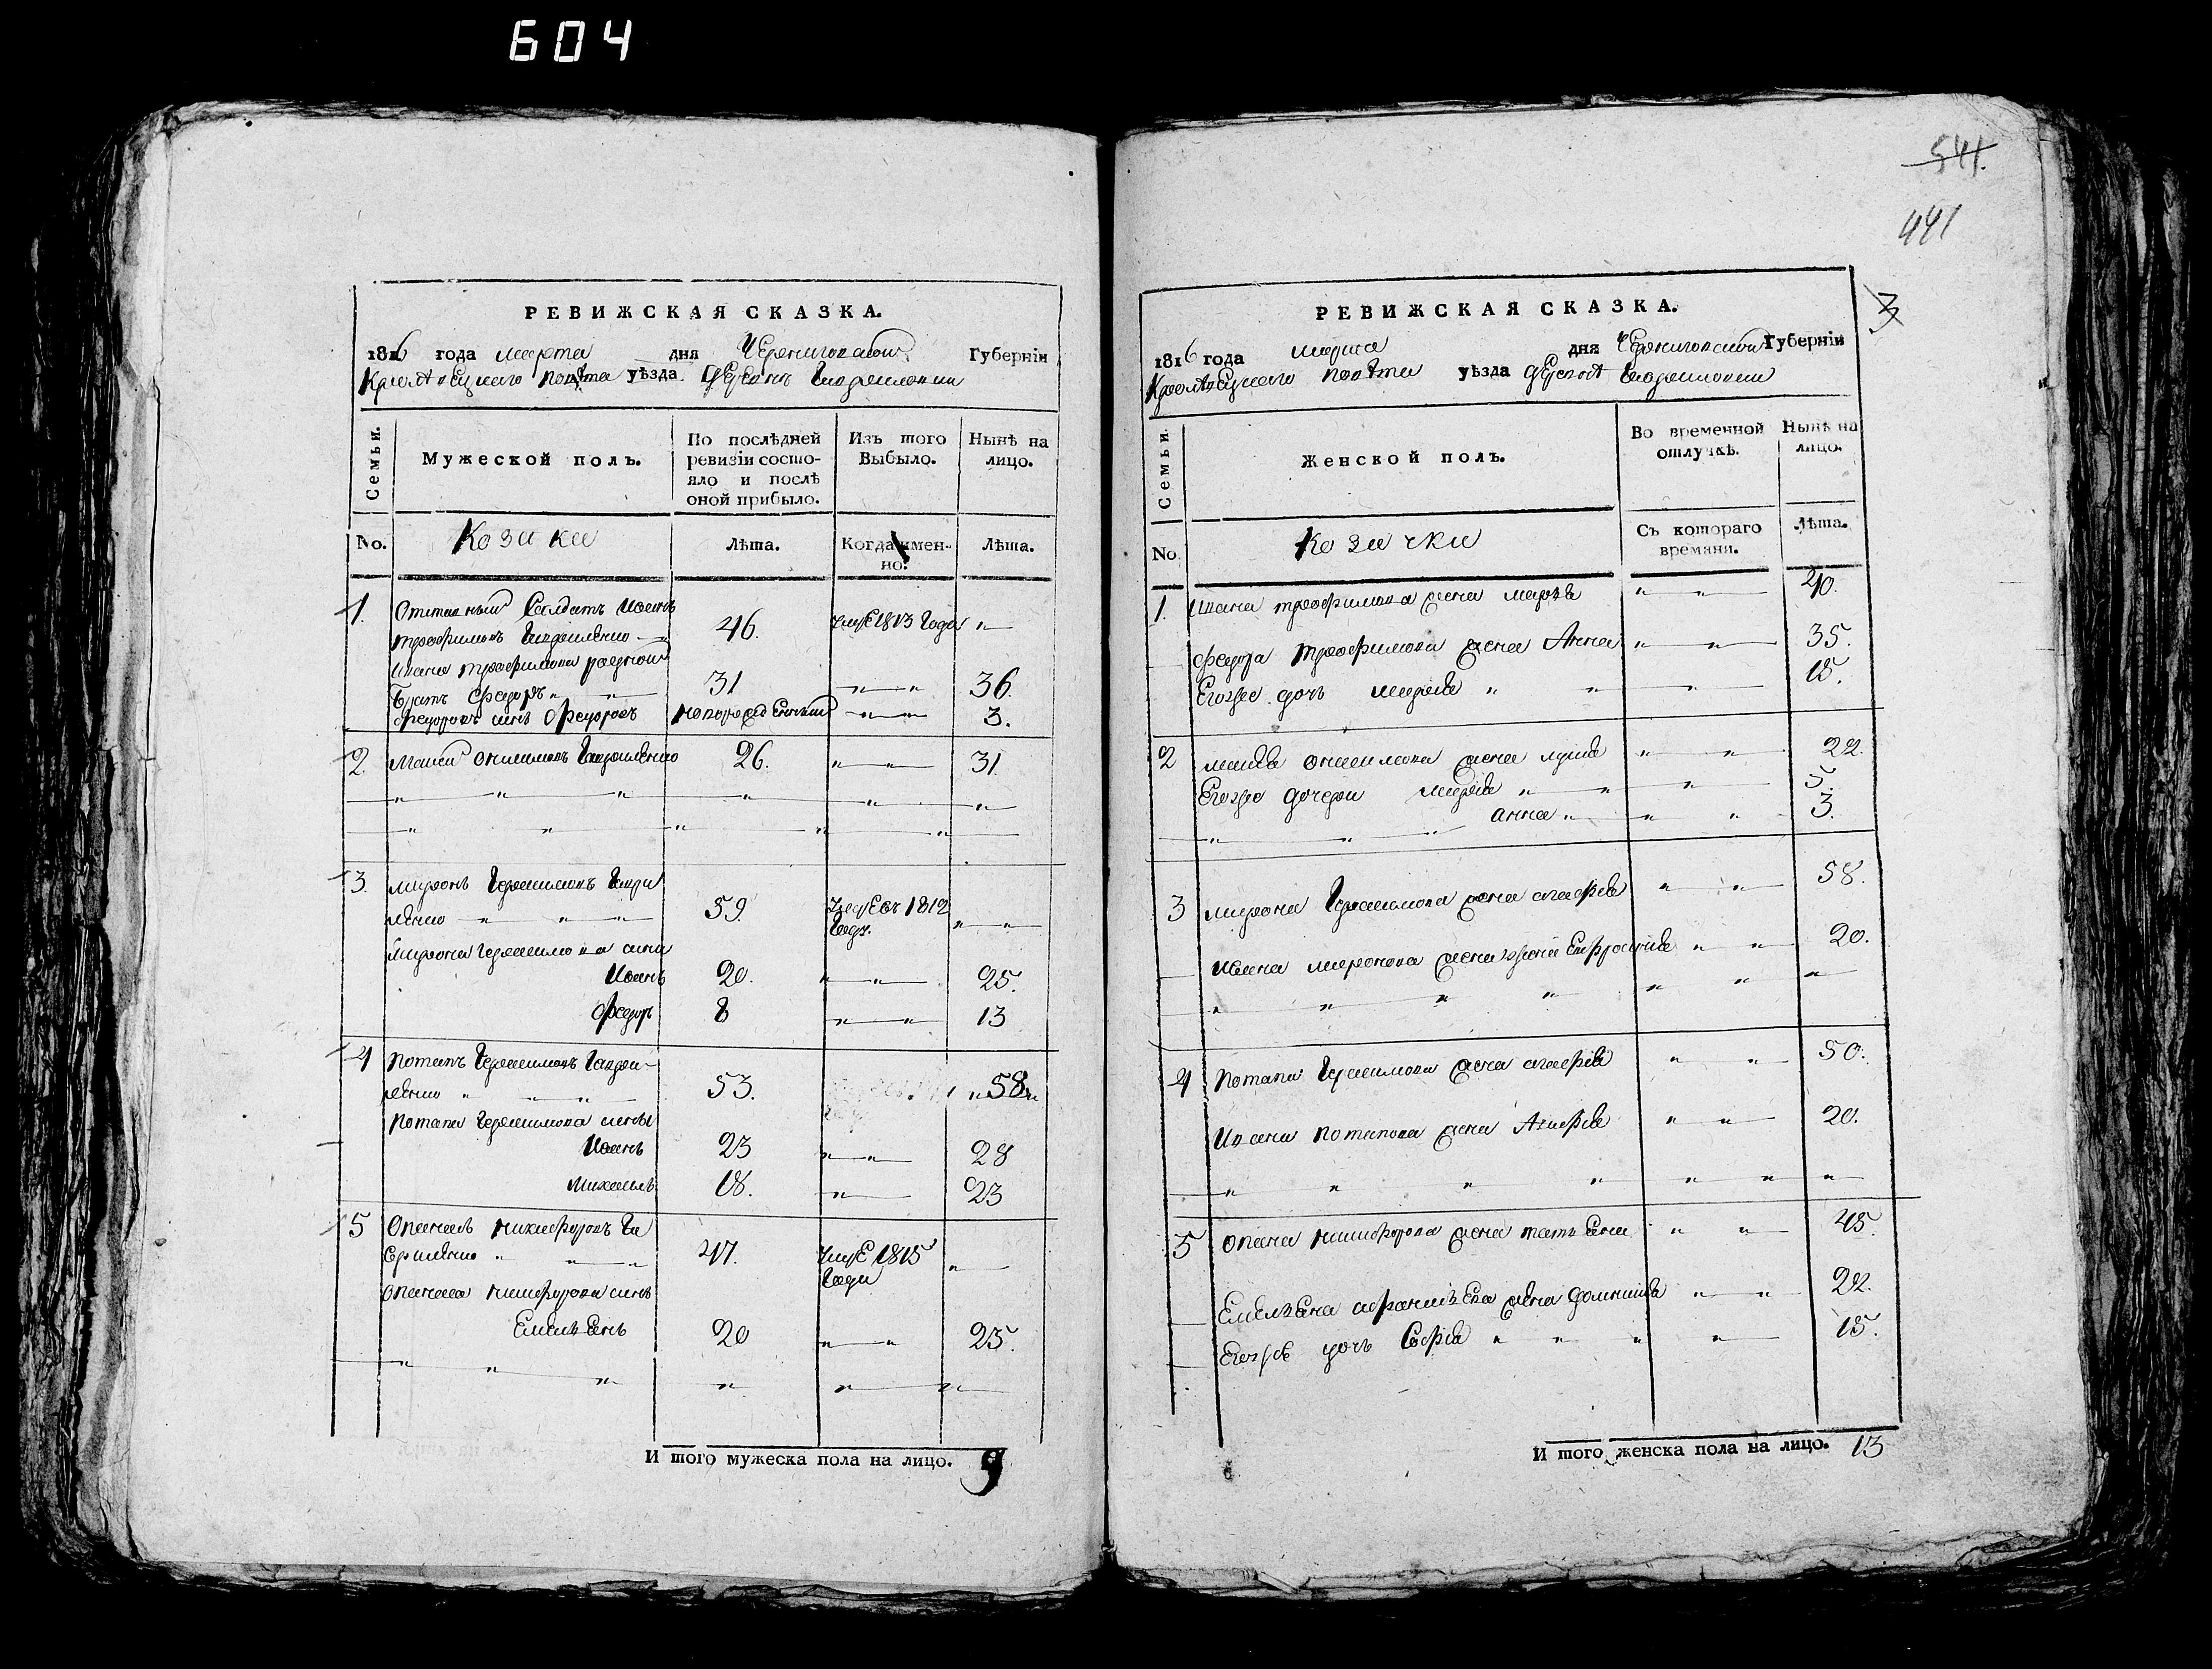 604
РЕВИЖСКАЯ СКАЗКА.
1816 года марта дня Черниговской Губерніи
Кролевецкого повѣта уѣзда
Семьи.
Мужеской полъ.
По послѣдней ревизіи состо-
яло и послѣ
оной прибыло.
Изъ того
Выбыло.
Нынѣ на
лицо.
No.
Козаки
Лѣта.
Когда имен-
но.
Лѣта.
1. Отставный Солдатъ Иванъ
Трофимовъ Гавриленко 46. 1813 Года
Ивана Трофимова родной
Братъ Федоръ 31 36.
Федоровъ синъ Федоръ 3.
2. Онисимовъ Гавриленко 26. 31.
3. Миронъ Герасимовъ Гаври
ленко 59. 1812
Году.
Мирона Герасимова сини
Иванъ 20. 25.
Федоръ 8 13
4 Потапъ Герасимовъ Гаври-
ленко 53. 58
Потапа Герасимова сины
Иванъ 23 28
Михаилъ 18. 23
5 Опанасъ Никифоровъ Га
вриленко 47. 1815
Года
Опанаса Никифорова синъ
Емельянъ 20 25.
И того мужеска пола на лицо. 9
541.
441
3
РЕВИЖСКАЯ СКАЗКА.
1816 года марта дня Черниговской Губерніи
Кролевецкого повѣта уѣзда
Семьи.
Женской полъ.
Во временной
отлучкѣ.
Нынѣ на
лицо.
No
Козачки
Съ котораго
времяни.
Лѣта.
1. Ивана Трофимова жена 40.
Федора Трофимова жена Анна 35.
Егоже дочь Марія 15.
2 Онисимова жена 22.
Егоже дочери Марія 5.
Анна 3.
3 Мирона Герасимова жена Агафія 58.
Ивана Миронова жена Ефросинія 20.
4 Потапа Герасимова жена Агафія 50.
Ивана Потапова жена Агафія 20.
5 Опанаса Никифорова жена Татьяна 45.
Емельяна жена Домникія 22.
Егоже дочь Софія 15.
И того женска пола на лицо. 13